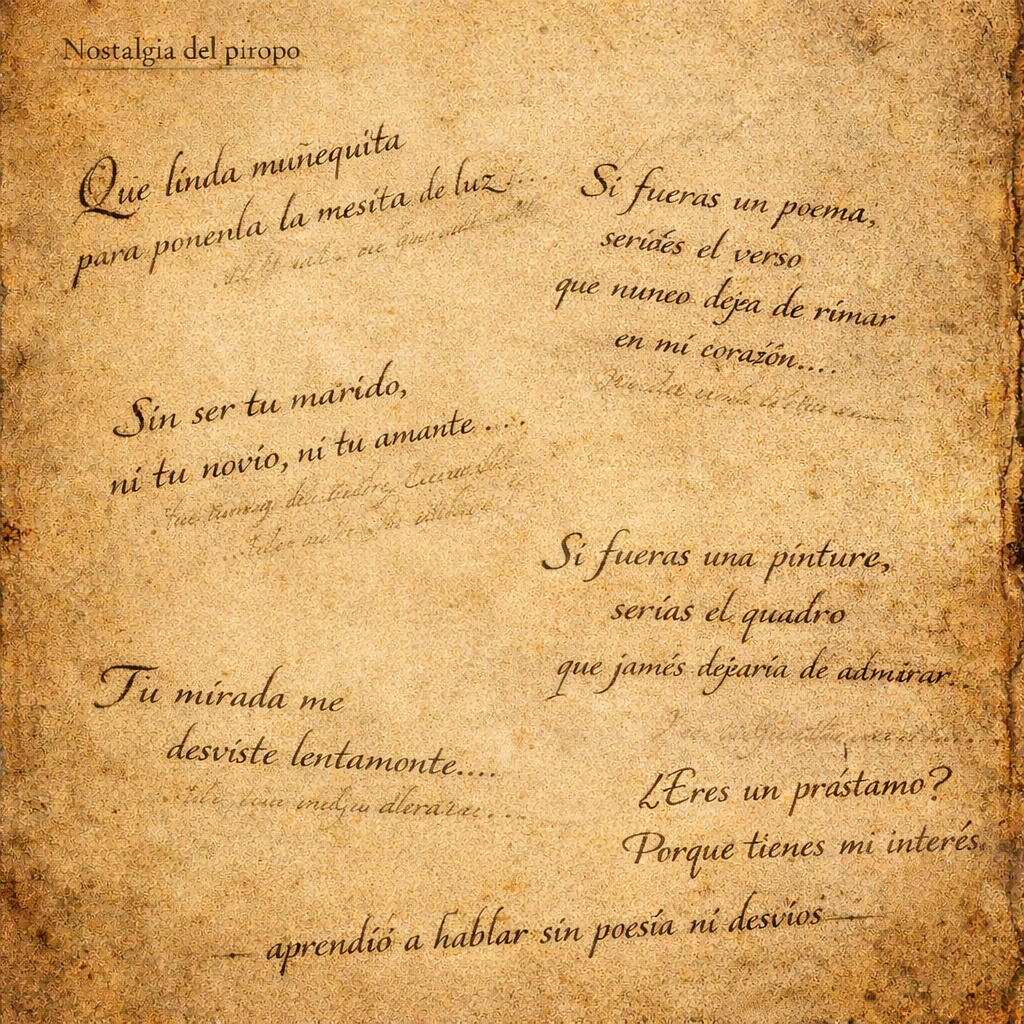 Nostalgia del piropo
Que linda muñequita
para ponenla la mesita de luz....
Si fueras un poema,
seriães el verso
que nuneo dejea de rimar
en mi corazón....
Sin ser tu marido,
ni tu novio, ni tu amante ....
Si fueras una pinture,
serías el quadro
que jamés dejearia de admirar...
Tu mirada me
desviste lentamonte....
¿Eres un prástamo?
Porque tienes mi interés.
— aprendió a hablar sin poesía ni desvíos —